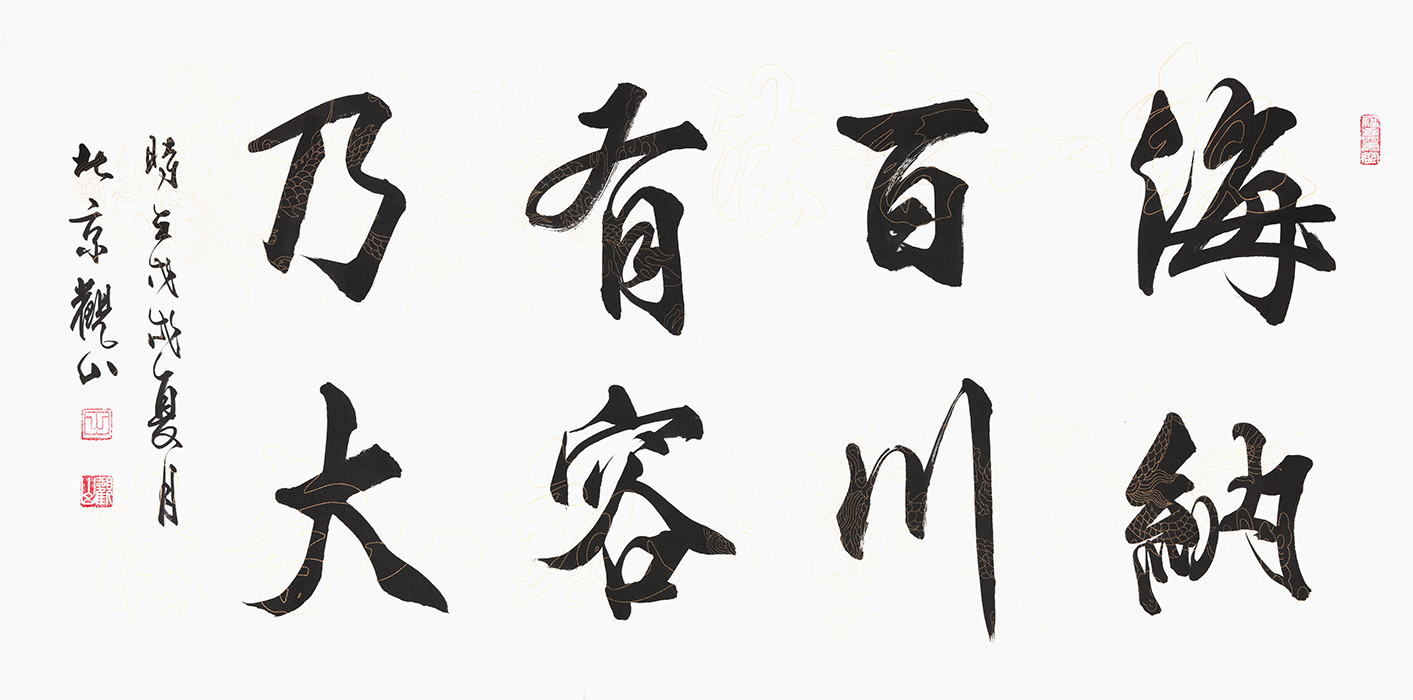 海納
百川
有容
乃大
時在戊戌夏月
北京觀山